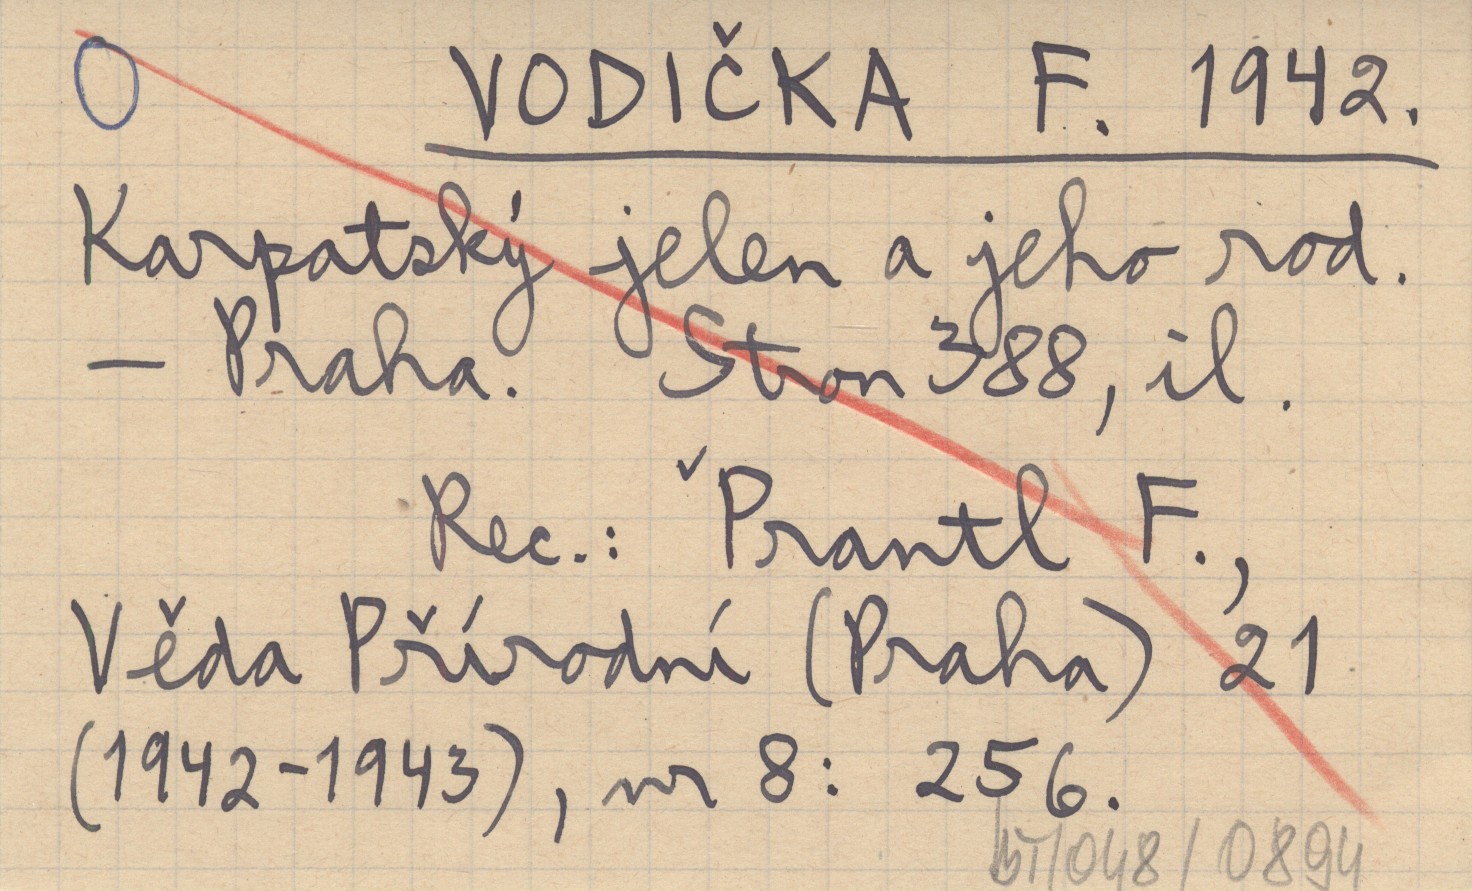 O VODIČKA F. 1942.
Karpatský jelen a jeho rod.
— Praha. Stron 388, il.
Rec.: ˇPrantl F.,
Věda Přírodní (Praha) 21
(1942-1943), nr 8: 256.
/048/0894